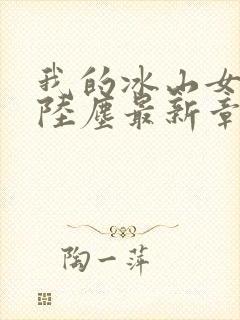 我的冰山女
陸塵最新章
陶一萍